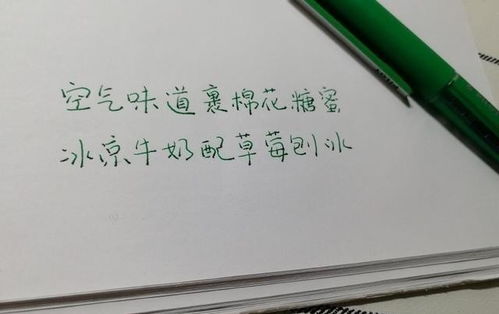 空气味道裹棉花糖蜜
冰凉牛奶配草莓刨冰